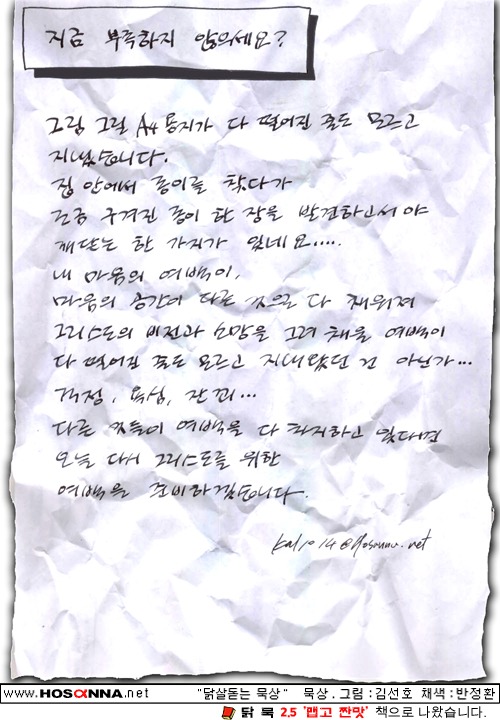 지금 부족하지 않으세요?
그림 그릴 A4 용지가 다 떨어진 줄도 모르고
지냈습니다.
집 안에서 종이를 찾다가
조금 구겨진 종이 한 장을 발견하고서야
깨닫는 한 가지가 있네요.....
내 마음의 여백이,
마음의 공간이 다른 것으로 다 채워져
그리스도의 비전과 소망을 그려 채울 여백이
다 떨어진 줄도 모르고 지내왔던 건 아닌가...
걱정, 욕심, 잔꾀...
다른 것들이 여백을 다 차지하고 있다면
오늘 다시 그리스도를 위한
여백을 준비하겠습니다.
www.HOSANNA.net "닭살돋는 묵상" 묵상.그림:김선호 채색:반정환
닭 묵 2.5 '맵고 짠맛' 책으로 나왔습니다.